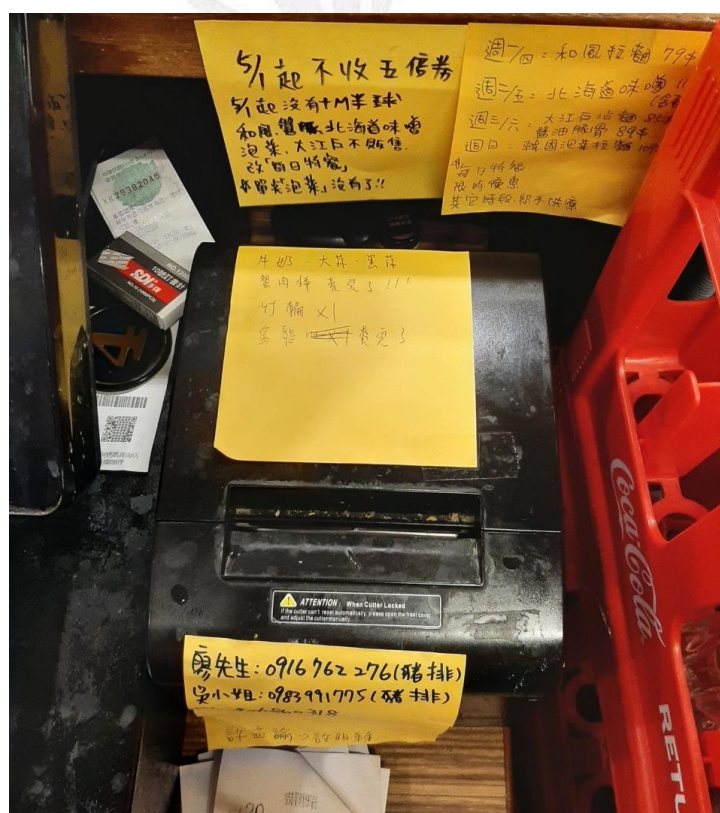 5/1起不收五倍券
5/1起沒有+M半球
和風、豐豚、北海道味噌
泡菜、大江戶不販售.
改「每日特餐」
單菜「泡菜」沒有了!!
週一/四:和風拉麵 79$
週二/五:北海道味噌
週三/六:大江戶
醬油豚骨 89$
週日:韓國泡菜拉麵
每日特餐
限時優惠
其它時段,恕不供應
XB29382045
SDI
4
蟹肉棒 賣完了!!!
竹輪 x1
賣完了
ATTENTION: When Cutter Locked
If the cutter can't reset automatically, please open the front cover
and adjust the cutter manually
廖先生:0916762276(豬排)
吳小姐:0983991775(豬排)
Coca-Cola
RETU